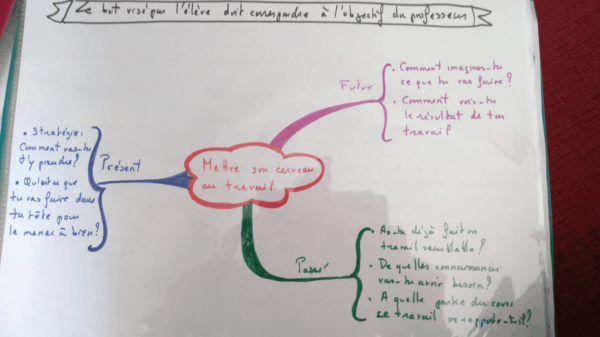 Le but visé par l'élève doit correspondre à l'objectif du professeur
Futur
• Comment imagines-tu
ce que tu vas faire ?
• Comment vois-tu
le résultat de ton
travail
Mettre son cerveau
au travail
Présent
• Stratégie :
Comment vas-tu
t'y prendre ?
• Qu'est ce que
tu vas faire dans
ta tête pour
le mener à bien ?
Passé
• As-tu déjà fait un
travail semblable ?
• De quelles connaissances
vas-tu avoir besoin ?
• A quelle partie du cours
ce travail se rapporte-t-il ?